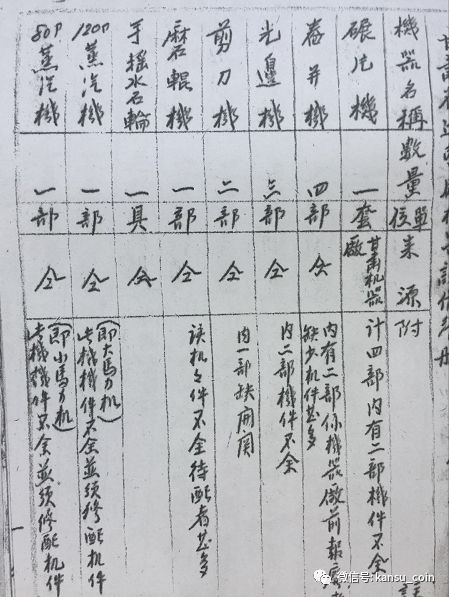 機器名稱 數量 單位 來源 附註
碾片機 一套 甘肅机器廠 計四部內有二部機件不全
卷并機 四部 仝 內有二部係機器廠前報
缺少机件甚多
光邊機 三部 仝 內二部機件不全
剪刀機 二部 仝 內一部缺開関
磨輥機 一部 仝 該机之件不全待配者甚多
手搖水石輪 一具 仝
120P蒸汽機 一部 仝 (即大馬力机)
此機機件不全並須修配机件
80P蒸汽機 一部 仝 (即小馬力机)
此機機件不全並須修配机件
微信号: kansu_coin